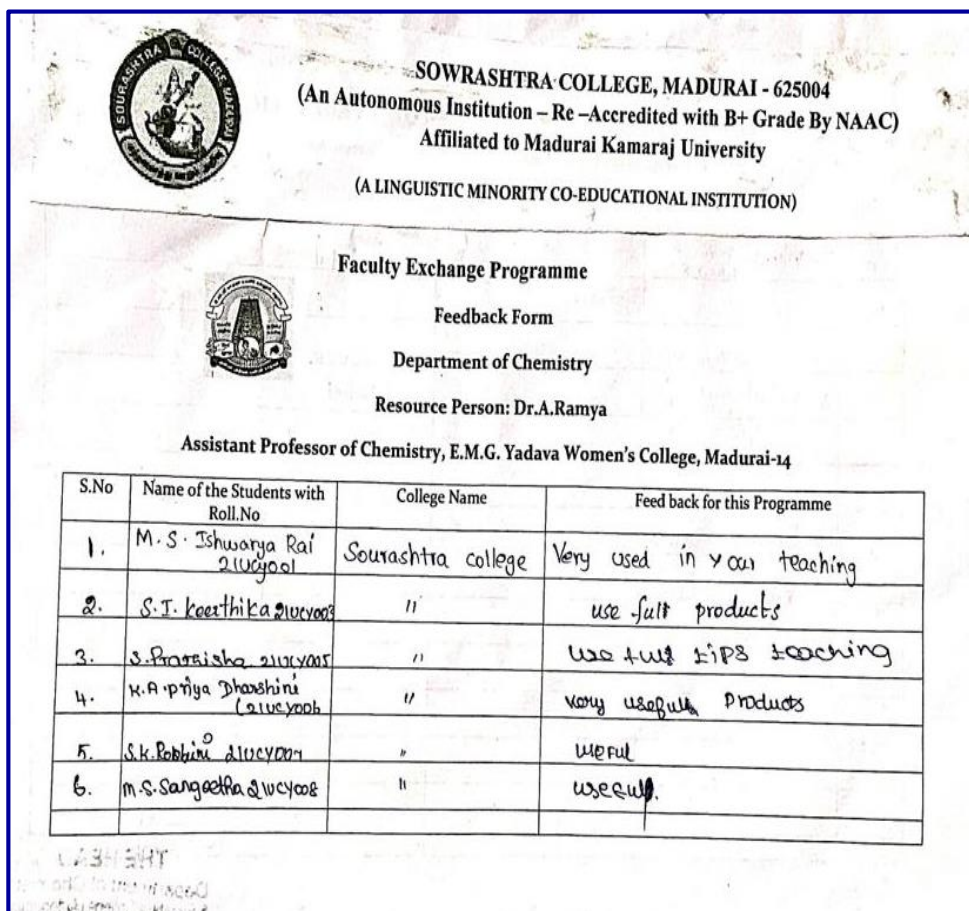 SOURASHTRA COLLEGE MADURAI
SOWRASHTRA COLLEGE, MADURAI - 625004
(An Autonomous Institution – Re –Accredited with B+ Grade By NAAC)
Affiliated to Madurai Kamaraj University
(A LINGUISTIC MINORITY CO-EDUCATIONAL INSTITUTION)
Faculty Exchange Programme
Feedback Form
Department of Chemistry
Resource Person: Dr.A.Ramya
Assistant Professor of Chemistry, E.M.G. Yadava Women's College, Madurai-14
S.No Name of the Students with Roll.No College Name Feed back for this Programme
1. M.S. Ishwarya Rai 21UCY001 Sourashtra college Very used in your teaching
2. S.I. Keerthika 21UCY003 " use full products
3. 21UCY005 " use full tips teaching
4. K.A. Priya Dharshini (21UCY006 " very usefull Products
5. S.K. 21UCY007 " useful
6. M.S. Sangeetha 21UCY008 " useful.
THE HEAD